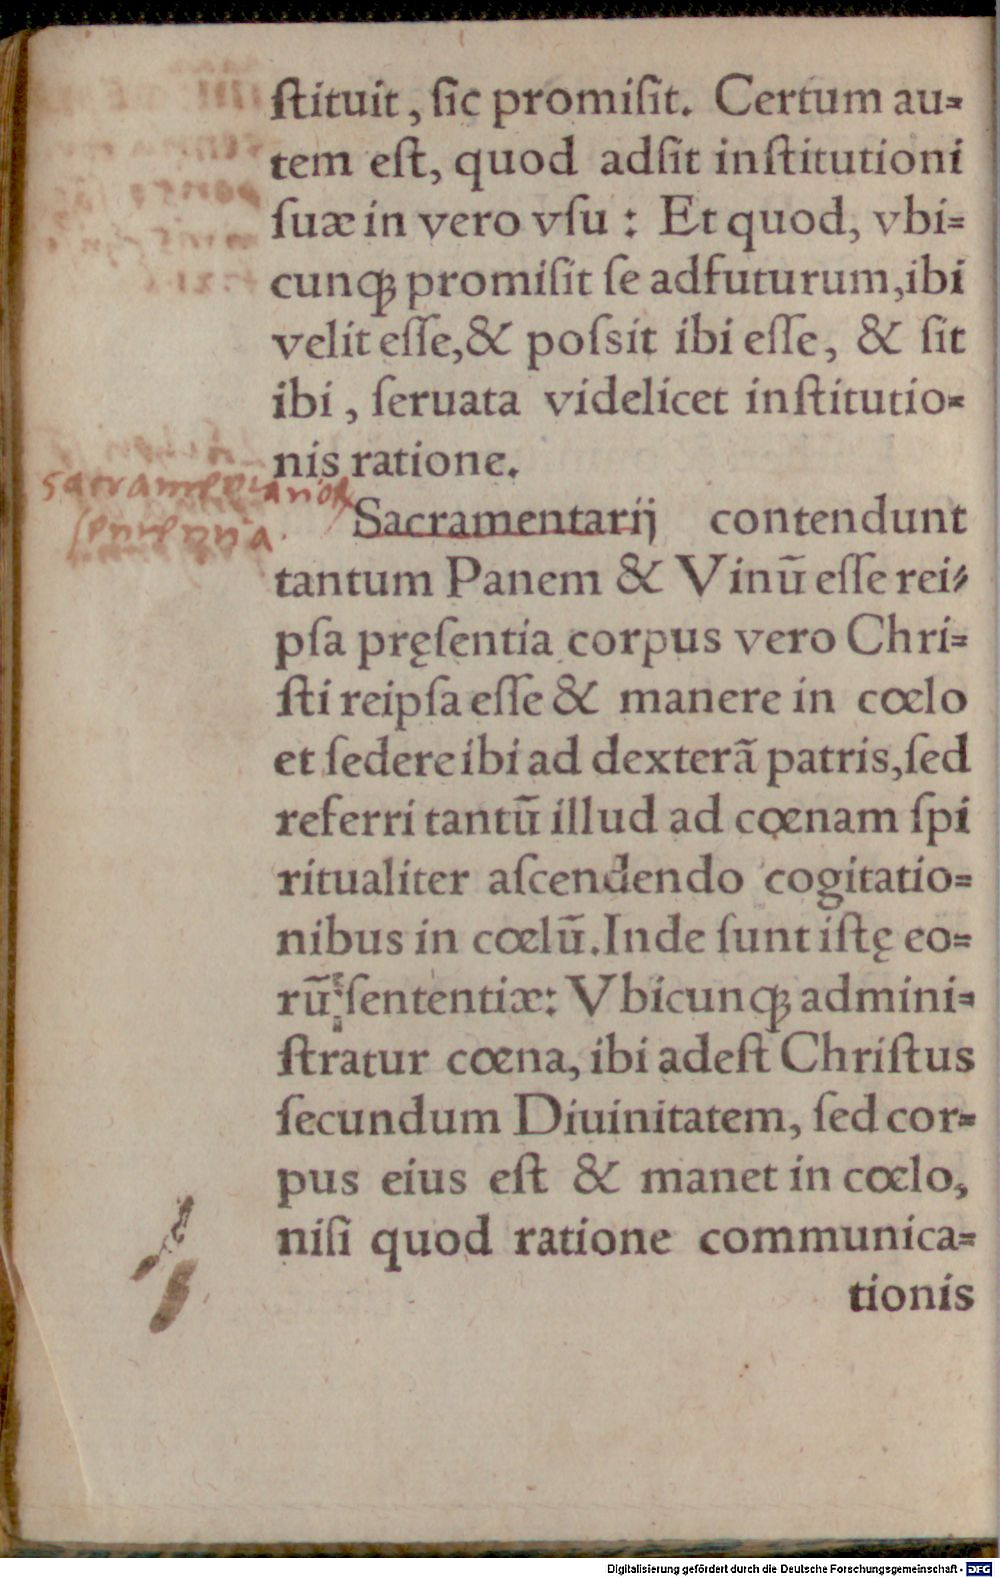 ſtituit, ſic promiſit. Certum au=
tem eſt, quod adſit inſtitutioni
ſuæ in vero vſu : Et quod, vbi=
cunqꝫ promiſit ſe adfuturum, ibi
velit eſſe, & poſsit ibi eſſe, & ſit
ibi, ſeruata videlicet inſtitutio=
nis ratione.
sacramentarioꝝ
sententia.
Sacramentarij contendunt
tantum Panem & Vinū eſſe rei=
pſa pręſentia corpus vero Chri=
ſti reipſa eſſe & manere in cœlo
et ſedere ibi ad dexterā patris, ſed
referri tantū illud ad cœnam ſpi
ritualiter aſcendendo cogitatio=
nibus in cœlū. Inde ſunt iſtę eo=
rū ſententiæ: Vbicunqꝫ admini=
ſtratur cœna, ibi adeſt Chriſtus
ſecundum Diuinitatem, ſed cor=
pus eius eſt & manet in cœlo,
niſi quod ratione communica=
tionis
Digitalisierung gefördert durch die Deutsche Forschungsgemeinschaft - DFG